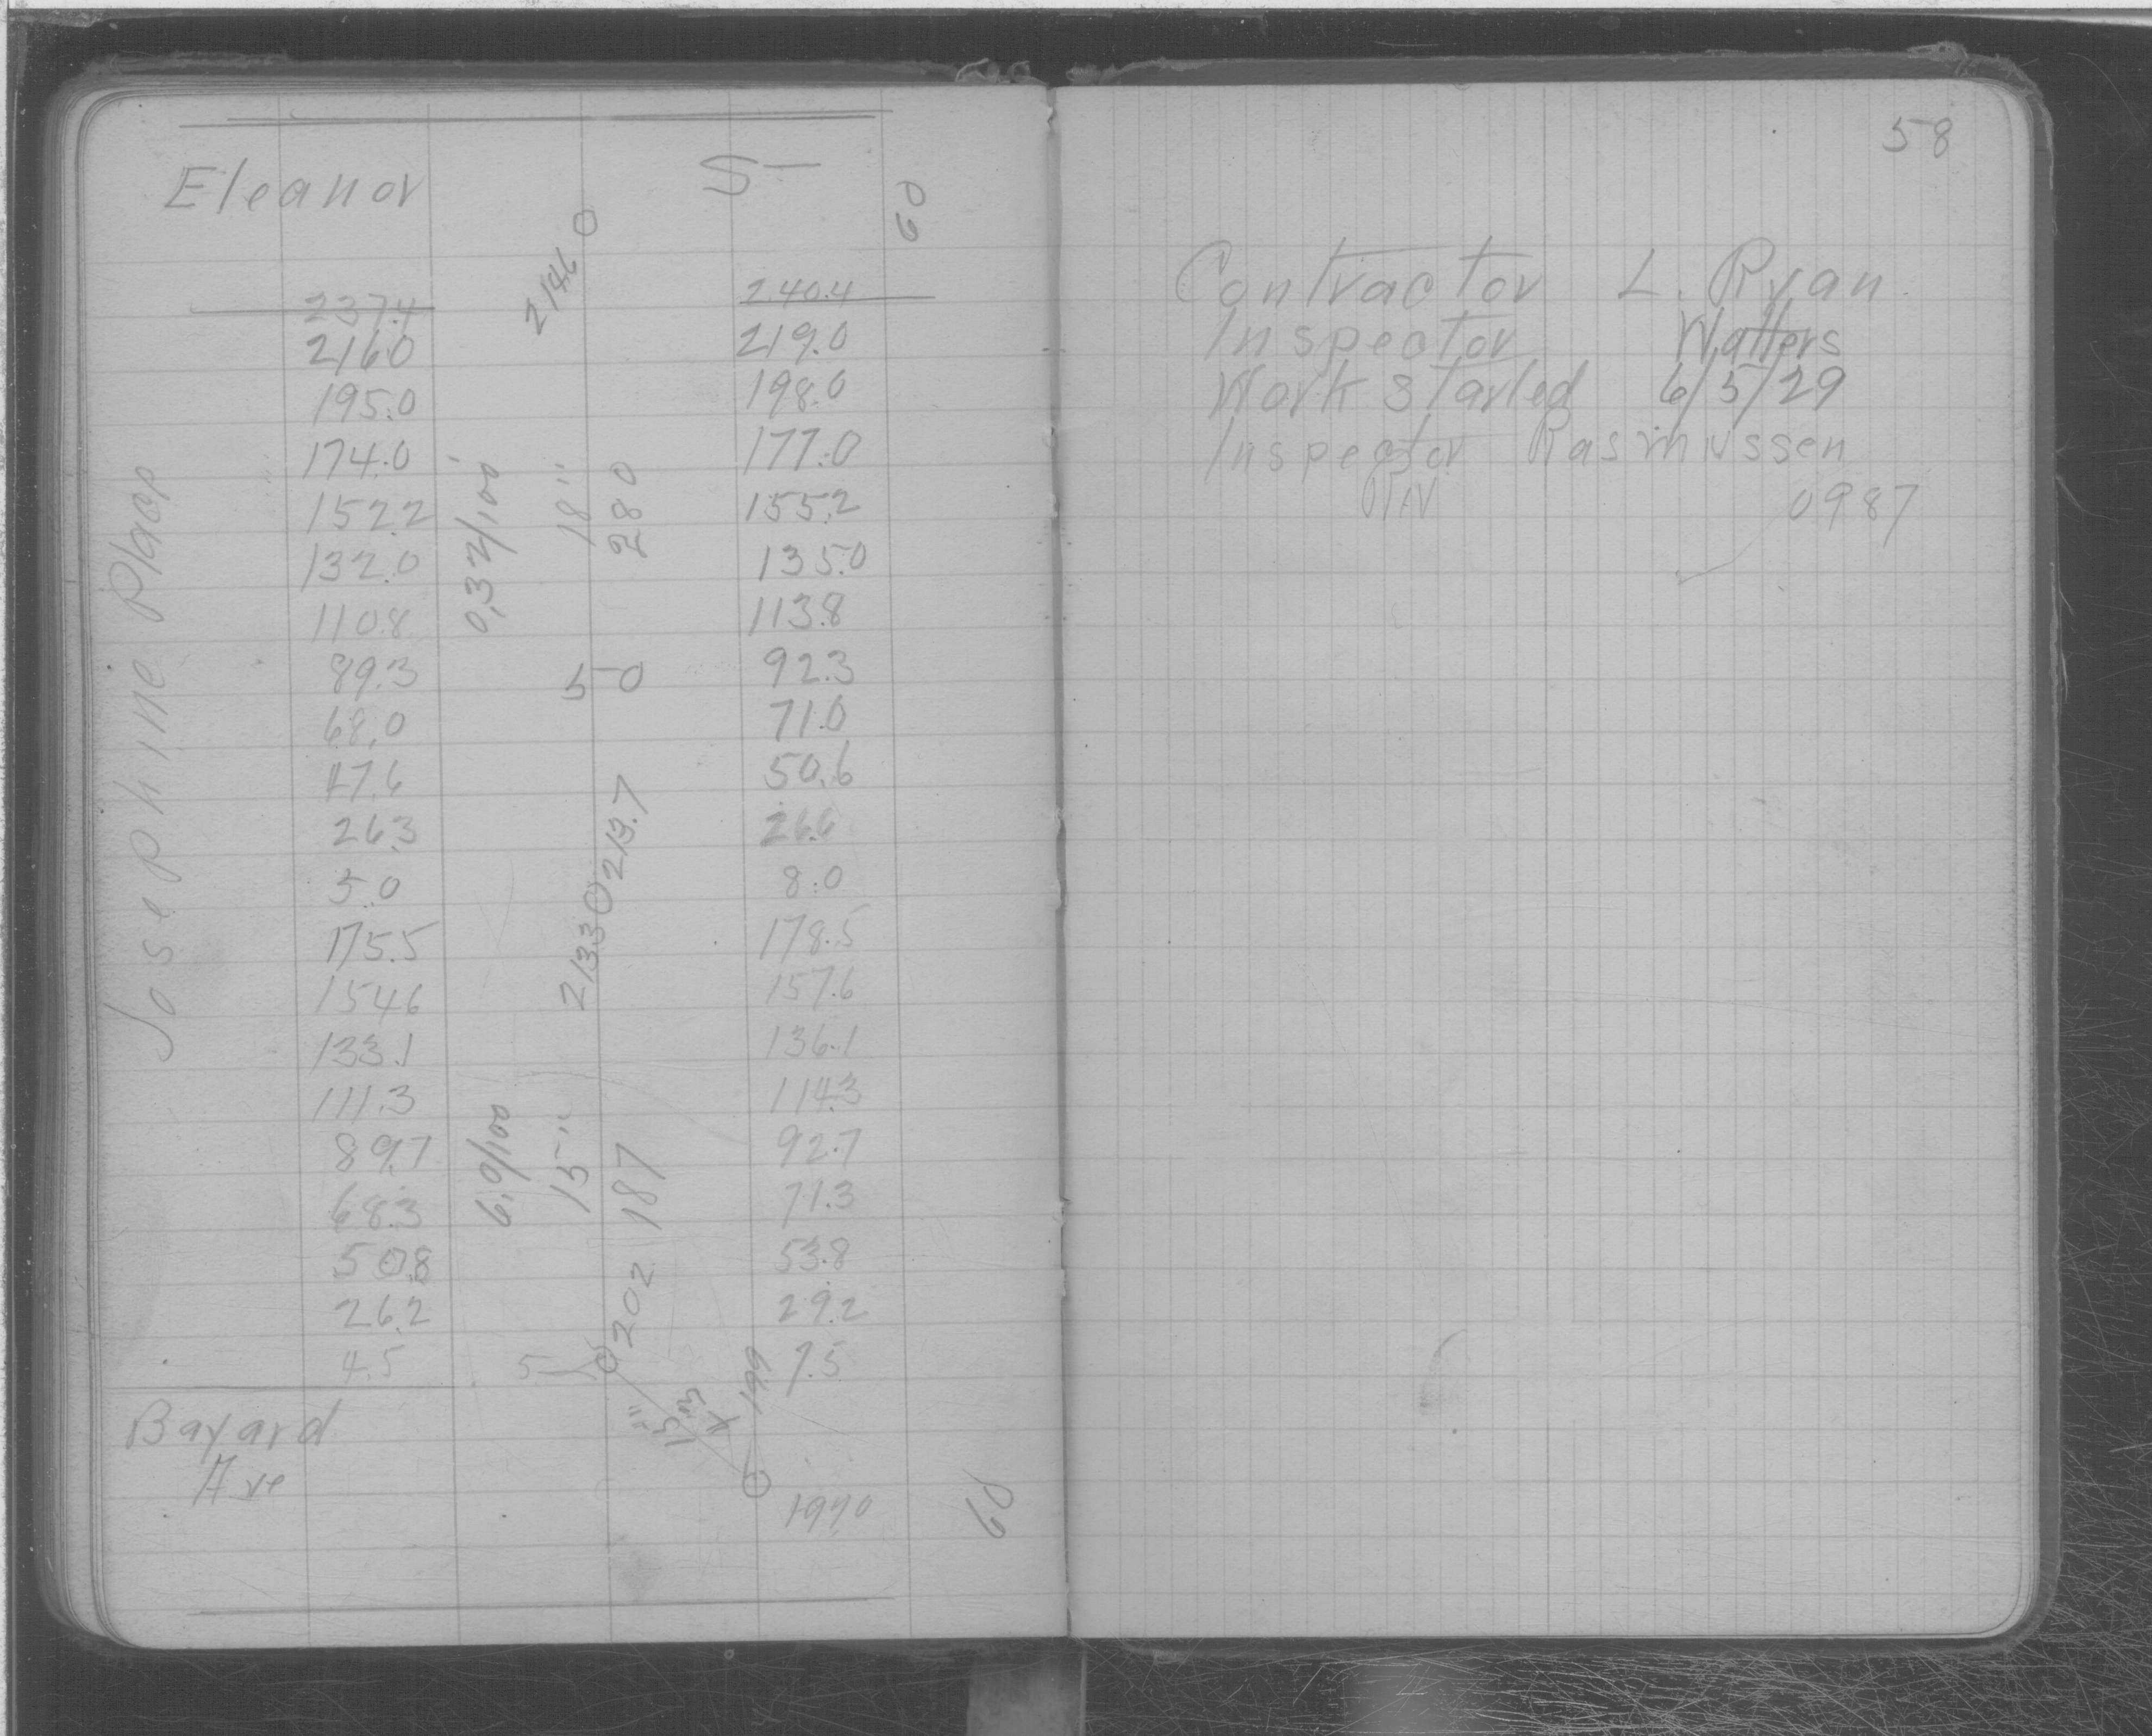 58
Eleanor S-
60
2146
237.4 240.4
216.0 219.0
195.0 198.0
174.0 177.0
152.2 155.2
132.0 135.0
110.8 113.8
89.3 92.3
68.0 71.0
47.6 50.6
26.3 26.6
5.0 8.0
175.5 178.5
154.6 157.6
133.1 136.1
111.3 114.3
89.7 92.7
68.3 71.3
50.8 53.8
26.2 29.2
4.5 7.5
Josephine Place
0,32/100'
18"
280
50
213.7
2133
6.9/100
15"
187
202
5
199
Bayard
Ave
197.0
60
Contractor L. Ryan
Inspector Watters
Work Started 6/5/29
Inspector Rasmussen
0987